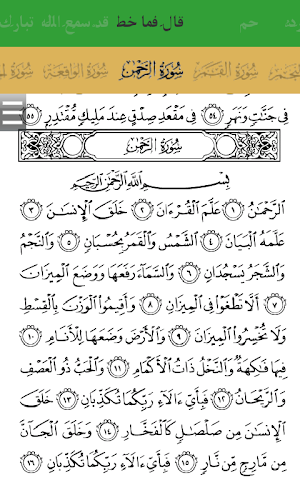 حم قال فما خط قد سمع الله تبارك
سُورَةُ القَمَر سُورَةُ الرَّحْمَٰن سُورَةُ الوَاقِعَة
فِي جَنَّاتٍ وَنَهَرٍ ٥٤ فِي مَقْعَدِ صِدْقٍ عِندَ مَلِيكٍ مُّقْتَدِرٍ ٥٥
سُورَةُ الرَّحْمَٰن
بِسْمِ اللَّهِ الرَّحْمَٰنِ الرَّحِيمِ
الرَّحْمَٰنُ ١ عَلَّمَ الْقُرْءَانَ ٢ خَلَقَ الْإِنسَٰنَ ٣
عَلَّمَهُ الْبَيَانَ ٤ الشَّمْسُ وَالْقَمَرُ بِحُسْبَانٍ ٥ وَالنَّجْمُ
وَالشَّجَرُ يَسْجُدَانِ ٦ وَالسَّمَاءَ رَفَعَهَا وَوَضَعَ الْمِيزَانَ
٧ أَلَّا تَطْغَوْا فِي الْمِيزَانِ ٨ وَأَقِيمُوا الْوَزْنَ بِالْقِسْطِ
وَلَا تُخْسِرُوا الْمِيزَانَ ٩ وَالْأَرْضَ وَضَعَهَا لِلْأَنَامِ ١٠
فِيهَا فَٰكِهَةٌ وَالنَّخْلُ ذَاتُ الْأَكْمَامِ ١١ وَالْحَبُّ ذُو الْعَصْفِ
وَالرَّيْحَانُ ١٢ فَبِأَيِّ ءَالَاءِ رَبِّكُمَا تُكَذِّبَانِ ١٣ خَلَقَ
الْإِنسَٰنَ مِن صَلْصَٰلٍ كَالْفَخَّارِ ١٤ وَخَلَقَ الْجَانَّ
مِن مَّارِجٍ مِّن نَّارٍ ١٥ فَبِأَيِّ ءَالَاءِ رَبِّكُمَا تُكَذِّبَانِ ١٦